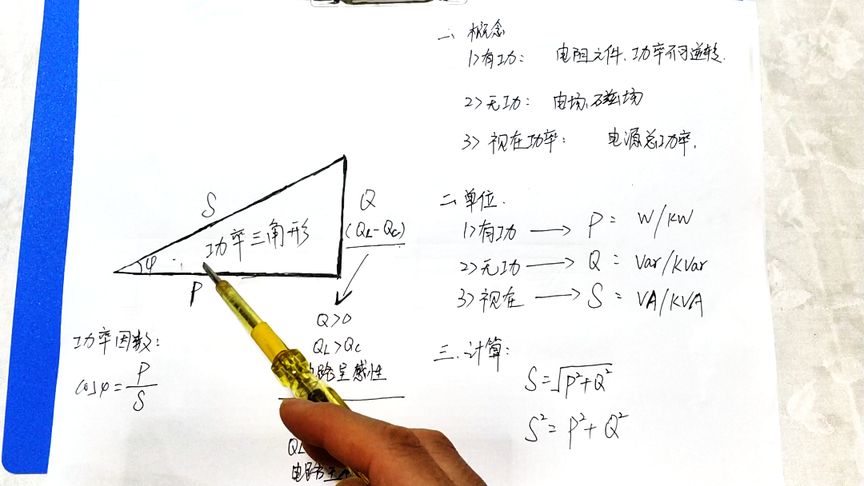 一、概念
1>有功： 电阻元件、功率不可逆转.
2>无功： 电场、磁场
3>视在功率： 电源总功率.
二、单位.
1>有功 → P = W/KW
2>无功 → Q = Var/KVar
3>视在 → S = VA/KVA
三.计算:
S=√P²+Q²
S²=P²+Q²
S
Q
(QL-QC)
功率三角形
φ
P
Q>0
QL>QC
路呈感性
QL
电路
功率因数:
cosφ=P/S